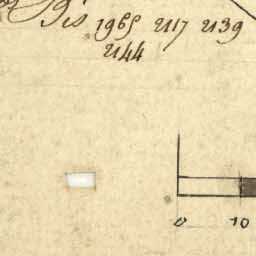 Bis 1965 2117 2139
2144
0 10